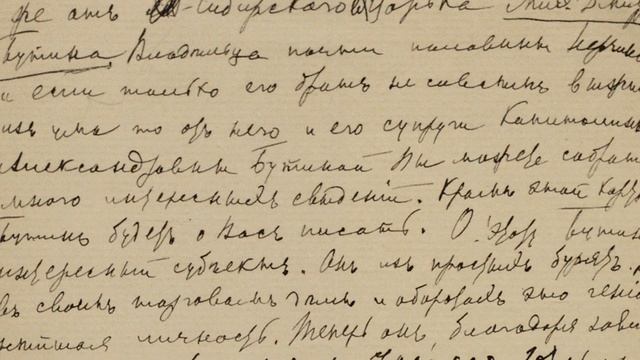 отъ Сибирскаго Царька Мих. Дми
Бутина Владѣльца почти половины Нерчин
и если только его братъ не совсѣмъ выжи
изъ ума то отъ него и его супруги Капитолины
Александровны Бутиной Вы можете собрать
много интересныхъ свѣденій. Кромѣ этой
Бутинъ будетъ о Васъ писать. О Бутин
интересный субъектъ. Онъ изъ простыхъ Бурятъ.
въ своихъ торговыхъ и оборотахъ это гені
личность. Теперь онъ, благодаря зави